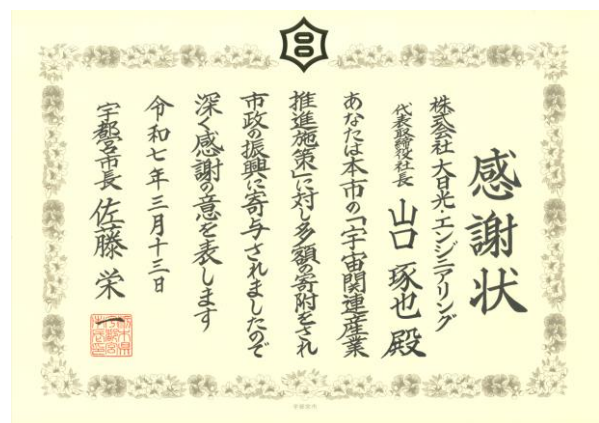 感謝状
株式会社 大日光・エンジニアリング
代表取締役社長 山口 琢也 殿
あなたは本市の「宇宙関連産業
推進施策」に対し多額の寄附をされ
市政の振興に寄与されましたので
深く感謝の意を表します
令和七年三月十三日
宇都宮市長 佐藤 栄一